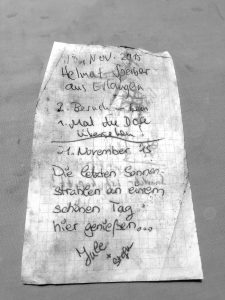 Nov. 2015
Helmut
aus Erlangen
2. Besuch
1. Mal die Dose
übersehen
1. November 15
Die letzten Sonnen-
strahlen an einem
schönen Tag
hier genießen...
Jule
+